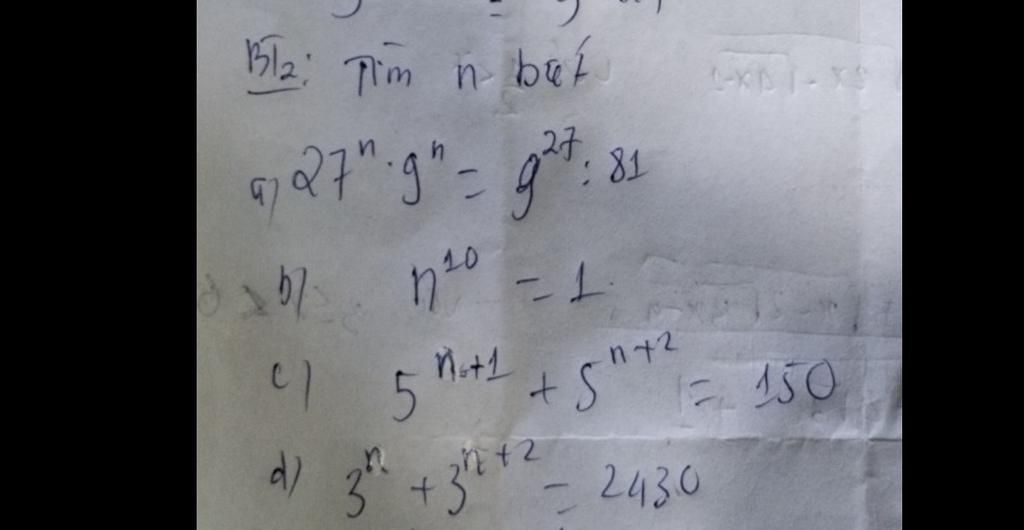 BT2: Tìm n biết
a) 27^n . 9^n = 9^27 : 81
b) n^10 = 1
c) 5^n+1 + 5^n+2 = 150
d) 3^n + 3^n+2 = 2430